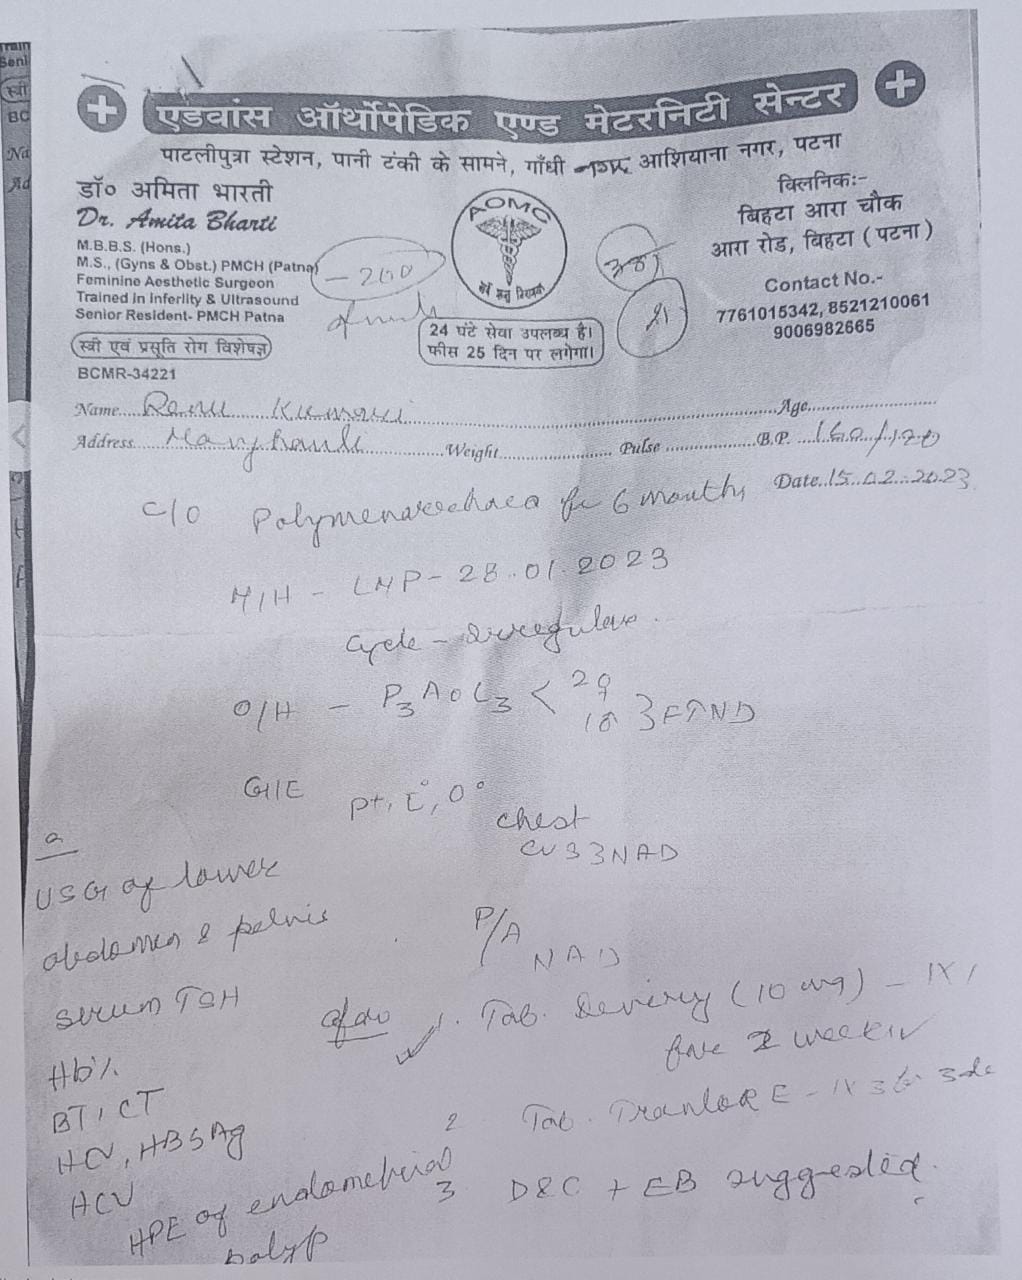 एडवांस ऑर्थोपेडिक एण्ड मेटरनिटी सेन्टर
पाटलीपुत्रा स्टेशन, पानी टंकी के सामने, गाँधी नगर आशियाना नगर, पटना
डॉ० अमिता भारती
Dr. Amita Bharti
M.B.B.S. (Hons.)
M.S., (Gyns & Obst.) PMCH (Patna)
Feminine Aesthetic Surgeon
Trained in Inferlity & Ultrasound
Senior Resident- PMCH Patna
स्त्री एवं प्रसूति रोग विशेषज्ञ
BCMR-34221
- 200
AOMC
24 घंटे सेवा उपलब्ध है।
फीस 25 दिन पर लगेगा।
क्लिनिक:-
बिहटा आरा चौक
आरा रोड, बिहटा (पटना)
Contact No.-
7761015342, 8521210061
9006982665
Name.... Renu Kumari Age
Address Weight Pulse B.P. 160/120
Date. 15.02.2023
C/O Polymenorrhoea for 6 months
M/H - LMP - 28.01.2023
Cycle - Irregular
O/H - P3A0L3 < 2♀ 1♂ 3FTND
G/E Pt, I°, O°
chest
CVS } NAD
P/A
NAD
USG of lower
abdomen & pelvis
serum TSH
Hb%
BT, CT
HCV, HBSAg
HCV
HPE of endometrial
polyp
Adv
1. Tab. Deviry (10 mg) - 1X1
for 2 weeks
2 Tab. E - 1X3 for 3
3 D&C + EB suggested.